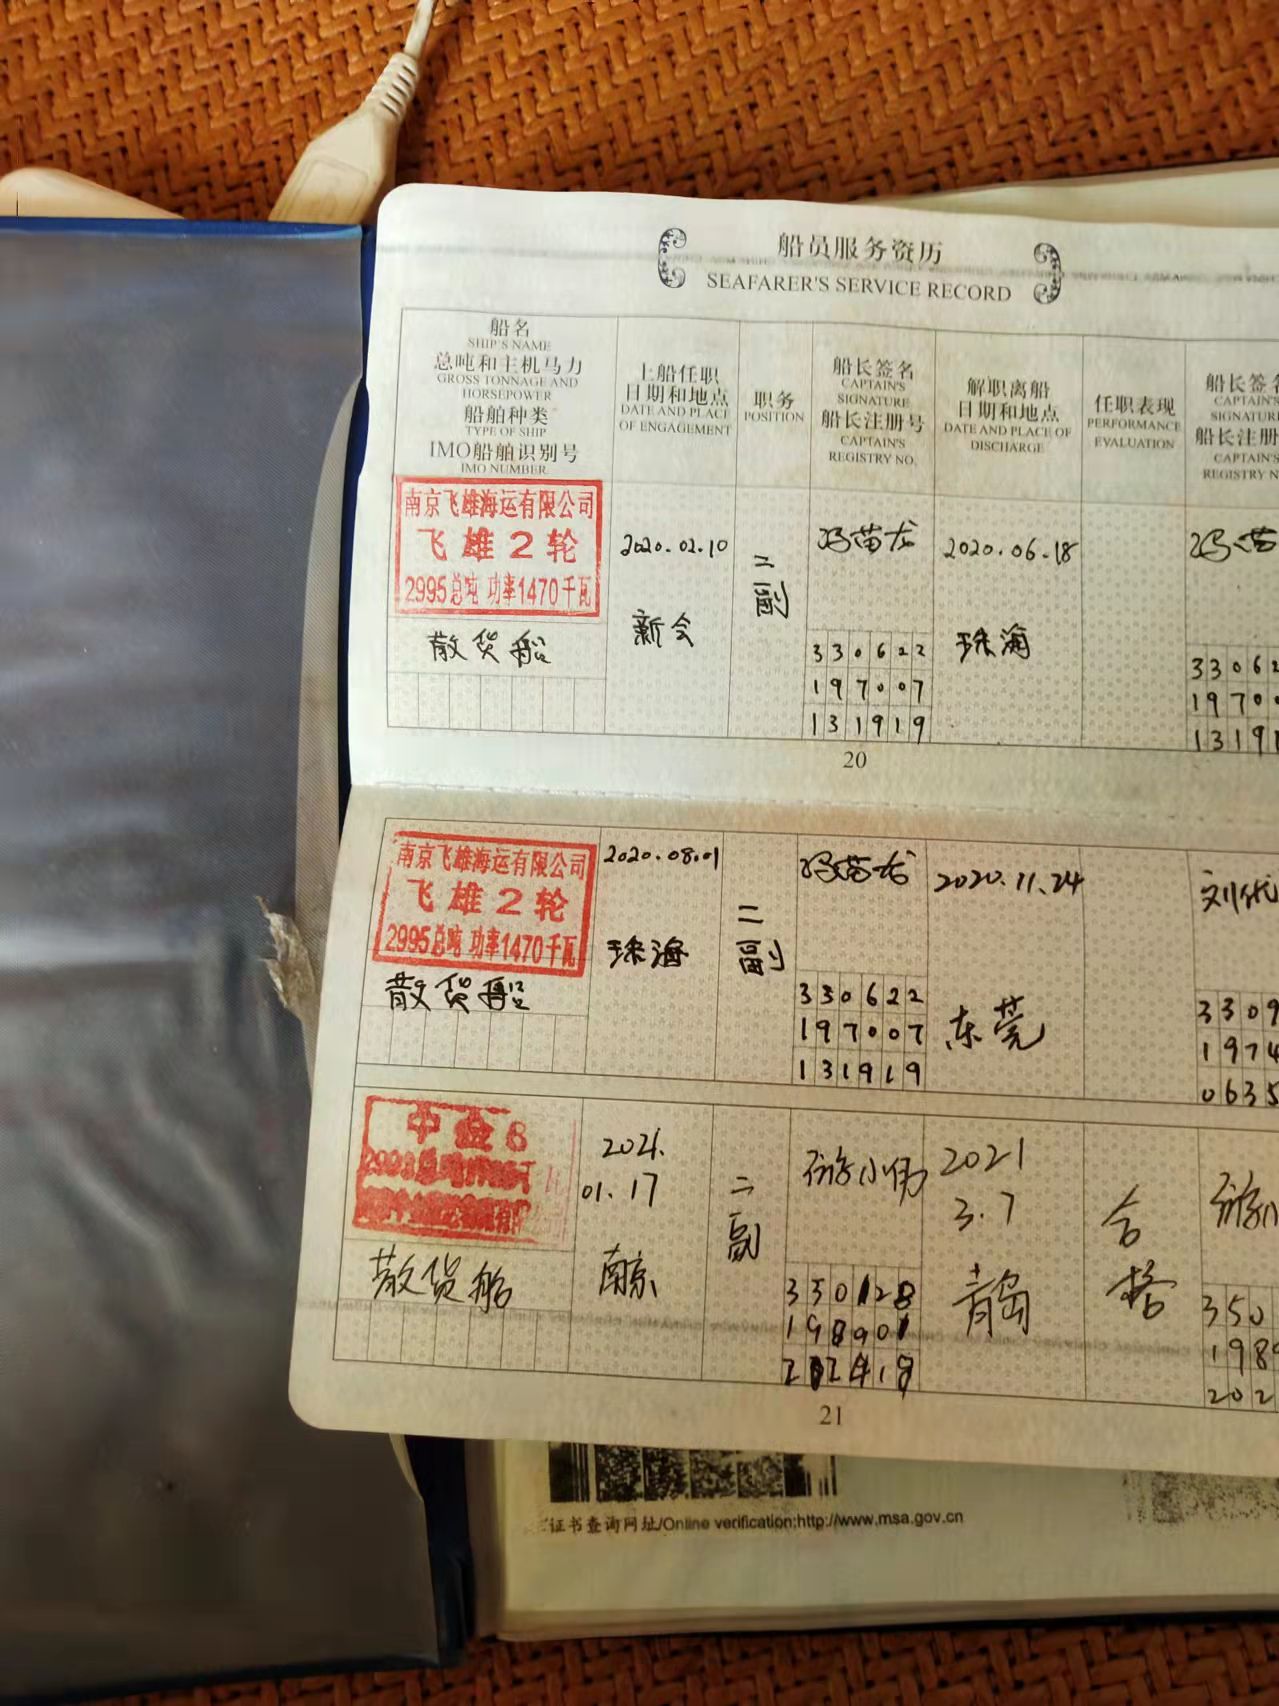 船员服务资历
SEAFARER'S SERVICE RECORD
船名
SHIP'S NAME
总吨和主机马力
GROSS TONNAGE AND
HORSEPOWER
船舶种类
TYPE OF SHIP
IMO船舶识别号
IMO NUMBER
上船任职
日期和地点
DATE AND PLACE
OF ENGAGEMENT
职务
POSITION
船长签名
CAPTAIN'S
SIGNATURE
船长注册号
CAPTAIN'S
REGISTRY NO.
解职离船
日期和地点
DATE AND PLACE OF
DISCHARGE
任职表现
PERFORMANCE
EVALUATION
船长签名
CAPTAIN'S
SIGNATUR
船长注册
CAPTAIN'S
REGISTRY N
南京飞雄海运有限公司
飞雄2轮
2995总吨 功率1470千瓦
散货船
2020.02.10
新会
二副
冯苗龙
330622
197007
131919
2020.06.18
珠海
冯苗
33062
19700
13191
20
南京飞雄海运有限公司
飞雄2轮
2995总吨 功率1470千瓦
散货船
2020.08.01
珠海
二副
冯苗龙
330622
197007
131919
2020.11.24
东莞
3309
1974
0635
中金8
散货船
2021.
01.17
南京
二副
游小伟
350128
198901
2021
3.7
青岛
合格
游小
350
198
202
21
证书查询网址/Online verification:http://www.msa.gov.cn